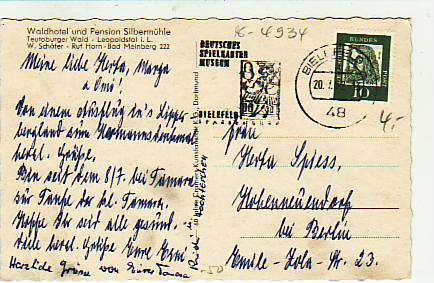 Waldhotel und Pension Silbermühle
Teutoburger Wald - Leopoldstal i. L.
W. Schäfer - Ruf Horn-Bad Meinberg 222
Meine liebe Herta, Marga
u. Omi!
Von einem Ausflug in's Lipper
bergland zum Hermannsdenkmal
herzl. Grüße.
Bin seit dem 8/7. bei Tamara
zur Taufe der kl. Tamara.
Hoffe Ihr seid alle gesund.
Viele herzl. Grüße Eure Erni
Herzliche Grüße von Eurer Tamara
DEUTSCHES
SPIELKARTEN
MUSEUM
BIELEFELD
BIELEFELD
20.
48
DEUTSCHE BUNDESPOST
10
4934
4,-
Frau
Herta Spiess,
Hohenneuendorf
bei Berlin
Emile-Zola-Str. 23.
-50
Dortmund